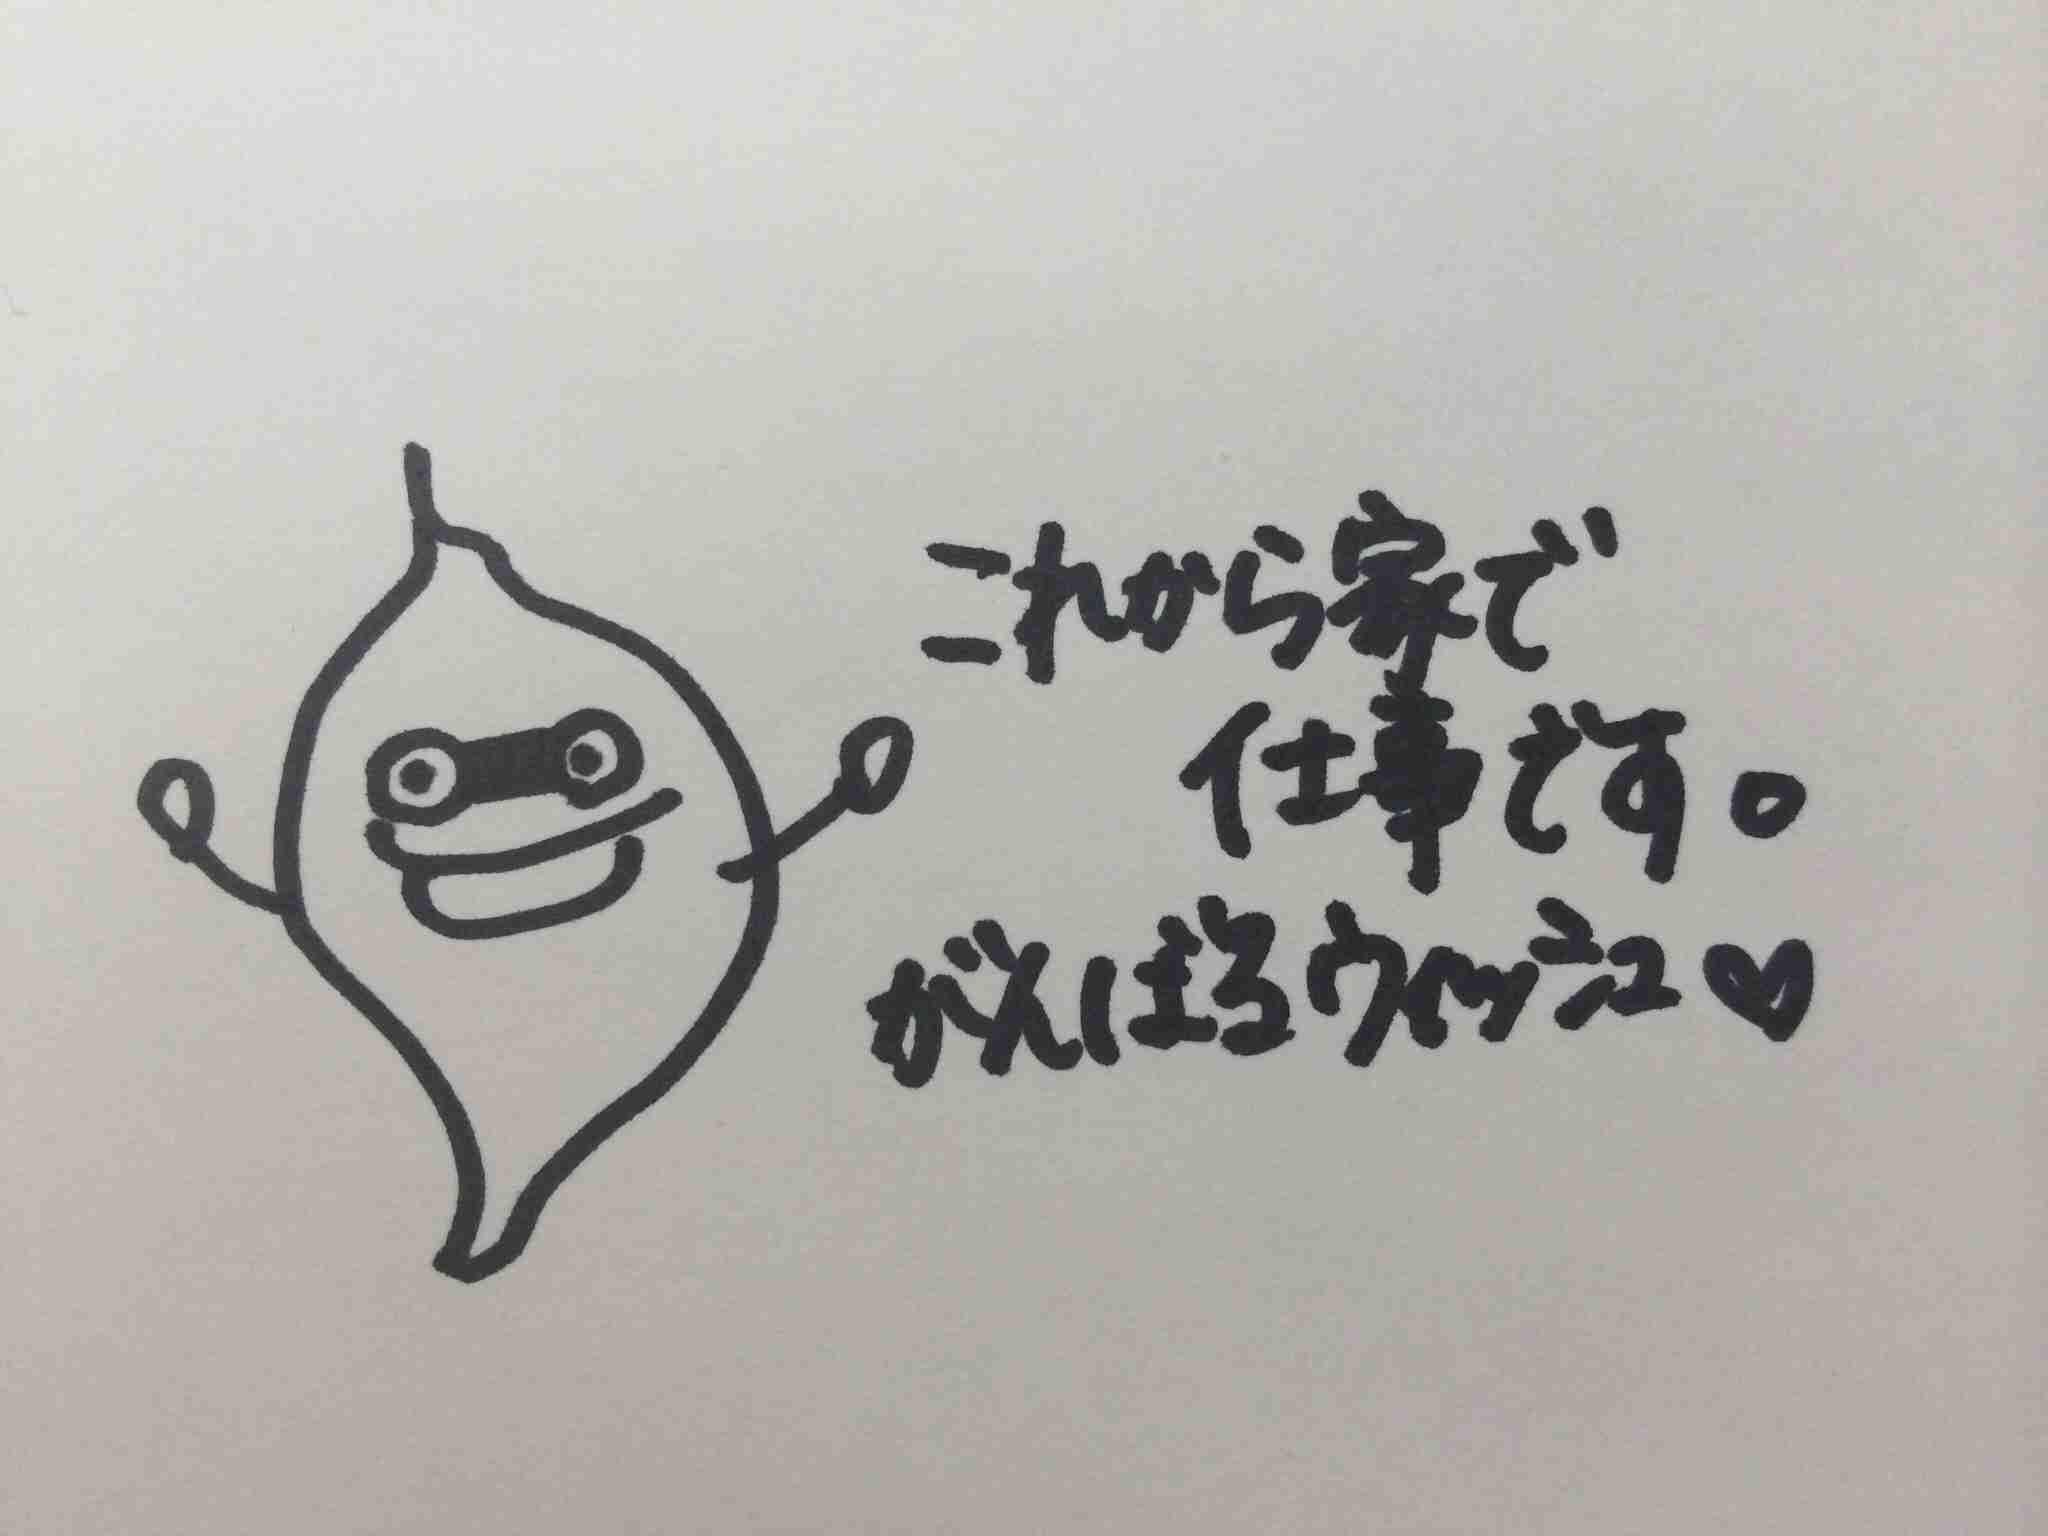 これから家で
仕事です。
がんばるウィッシュ♥